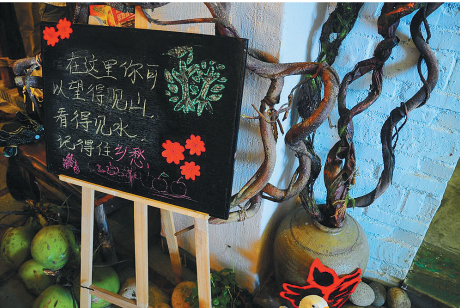 在这里你可
以望得见山,
看得见水,
记得住乡愁